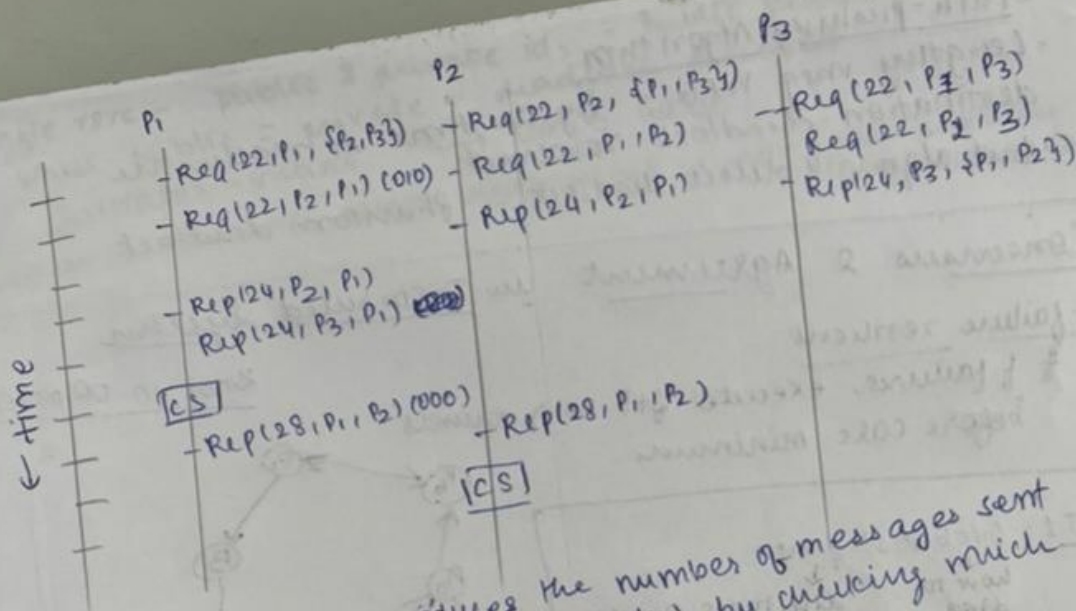 P1
Req(22,P1, {P2,P3})
Req(22,P2,P1) (010)
Rep(24,P2,P1)
Rep(24,P3,P1)
CS
Rep(28,P1,P2)(000)
P2
Req(22,P2, {P1,P3})
Req(22,P1,P2)
Rep(24,P2,P1)
Rep(28,P1,P2)
CS
P3
Req(22,P1,P3)
Req(22,P2,P3)
Rep(24,P3,{P1,P2})
← time
the number of messages sent
by checking which